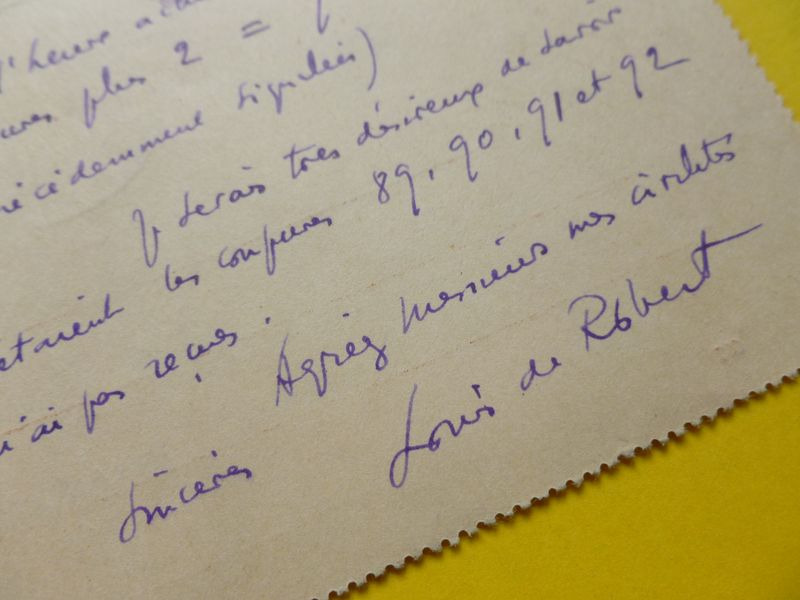 l'heure
plus 2 =
précédemment signalées)
Je serais très désireux de savoir
étaient les coupures 89, 90, 91 et 92
n'ai pas reçues. Agréez Messieurs mes civilités
sincères Louis de Robert